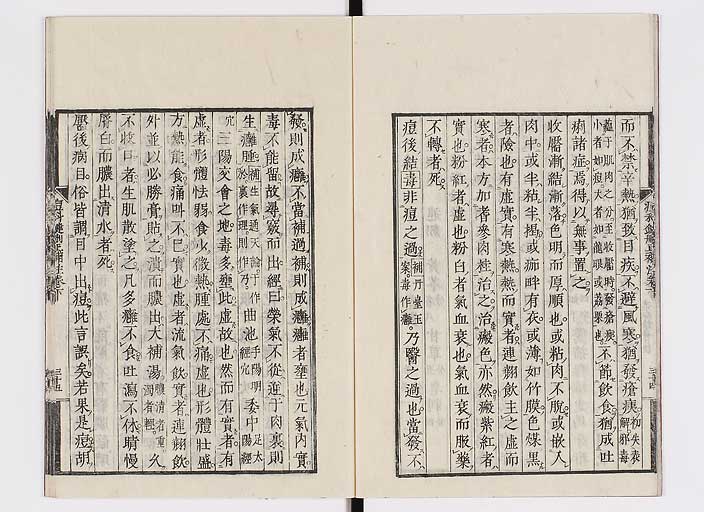 而不禁辛熱猶致目疾不避風寒猶發瘡痍初失表解邪毒
蘊于肌肉之分至收靨時發瘡痍小者如痘大者如龍眼或荔栗也不節飲食猶成吐
痢諸症焉得以無事置之
收靨漸結漸落色明而厚順也或粘肉不脫或嵌入
肉中或半粘半揭或疕畔有衣或薄如竹膜色煤黑
者險也有虛實有寒熱熱而實者連翹飲主之虛而
寒者本方加耆參肉桂治之治瘢色亦然瘢紫紅者
實也粉紅者虛也粉白者氣血衰也氣血衰而服藥
不轉者死
痘後結毒非痘之過補丹臺玉案毒作癰乃醫之過也當發不
發則成癰不當補過補則成癰癰者壅也元氣內實
毒不能留故尋竅而出經曰榮氣不從逆于肉裏則
生癰腫補生氣通天論于作於裏作理則作乃曲池手陽明經穴委中足太陽經
穴三陽交會之地毒多壅此虛故也然而有實者有
虛者形體怯弱食少微熱腫處不痛虛也形體壯盛
方熱能食痛呌不已實也虛者流氣飲實者連翹飲
外並以必勝膏貼之潰而膿出大補湯膿清者重濁者輕久
不收口者生肌散塗之凡多癰不食吐瀉不休晴慢
脣白而膿出清水者死
靨後病目俗皆謂目中出痘此言誤矣若果是痘胡